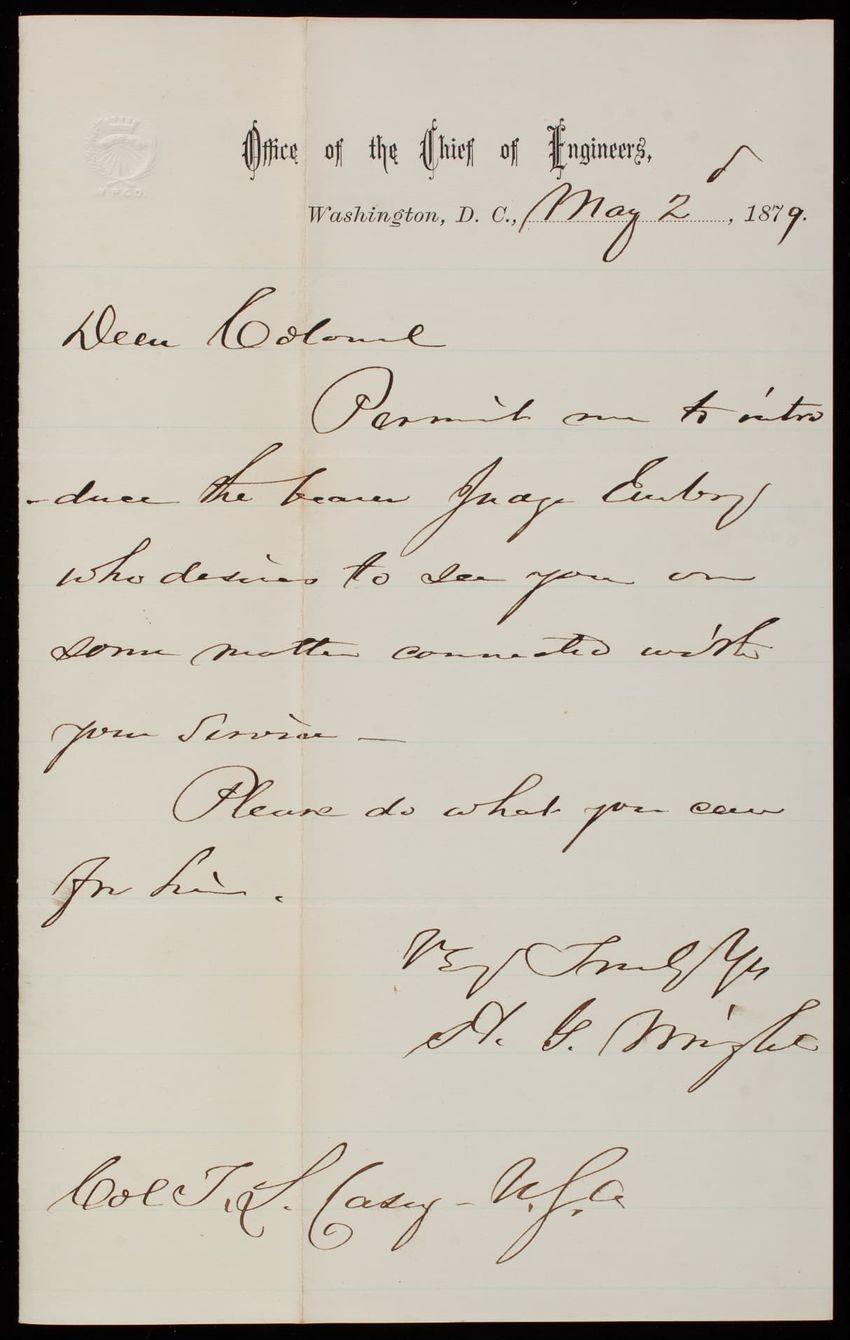 Office of the Chief of Engineers,
Washington, D. C., May 2d, 1879.
Dear Colonel
Permit me to intro
-duce the bearer Judge Embry
who desires to see you on
some matter connected with
your service —
Please do what you can
for him.
Very Truly Yrs
H. G. Wright
Col T. L. Casey - U.S.A